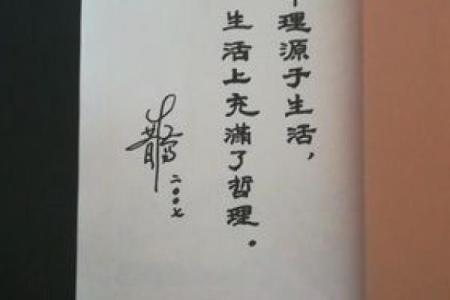 理源于生活，
生活上充滿了哲理。
二〇〇七